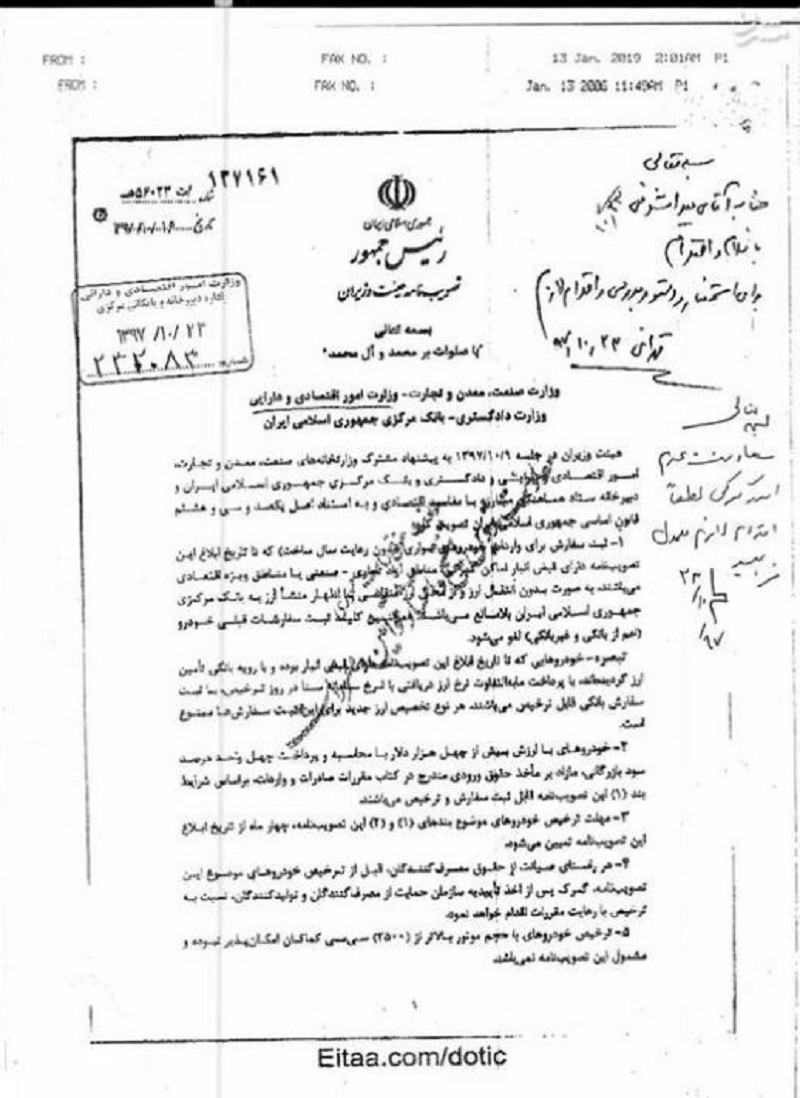 FROM : FAX NO. : 13 Jan. 2019 2:01AM P1
FROM : FAX NO. : Jan. 13 2006 11:49AM P1
۱۳۷۱۶۱
شماره ت ۵۶۰۲۳هـ
تاریخ
جمهوری اسلامی ایران
رئیس جمهور
تصویب‌نامه هیئت وزیران
بسمه تعالی
"با صلوات بر محمد و آل محمد"
وزارت امور اقتصادی و دارایی
اداره دبیرخانه و بایگانی مرکزی
۱۳۹۷/۱۰/۲۳
شماره ۲۳۲۰۸۳
بسمه تعالی
جناب آقای
با سلام و احترام
برای استحضار و دستور بررسی و اقدام لازم
۹۷/۱۰/۲۳
وزارت صنعت، معدن و تجارت- وزارت امور اقتصادی و دارایی
وزارت دادگستری- بانک مرکزی جمهوری اسلامی ایران
هیئت وزیران در جلسه ۱۳۹۷/۱۰/۹ به پیشنهاد مشترک وزارتخانه‌های صنعت، معدن و تجارت،
امور اقتصادی و دارایی و دادگستری و بانک مرکزی جمهوری اسلامی ایران و
دبیرخانه ستاد هماهنگی مبارزه با مفاسد اقتصادی و به استناد اصل یکصد و سی و هشتم
قانون اساسی جمهوری اسلامی ایران تصویب کرد:
۱- ثبت سفارش برای واردات خودروهای سواری (بدون رعایت سال ساخت) که تا تاریخ ابلاغ این
تصویب‌نامه دارای قبض انبار اماکن گمرکی، مناطق آزاد تجاری - صنعتی یا مناطق ویژه اقتصادی
می‌باشند، به صورت بدون انتقال ارز و از محل ارز متقاضی با اظهار منشأ ارز به بانک مرکزی
جمهوری اسلامی ایران بلامانع می‌باشد. همچنین کلیه ثبت سفارشات قبلی خودرو
(اعم از بانکی و غیربانکی) لغو می‌شود.
تبصره- خودروهایی که تا تاریخ ابلاغ این تصویب‌نامه دارای قبض انبار بوده و با رویه بانکی تأمین
ارز گردیده‌اند، با پرداخت مابه‌التفاوت نرخ ارز دریافتی با نرخ سامانه سنا در روز ترخیص، با ثبت
سفارش بانکی قابل ترخیص می‌باشند. هر نوع تخصیص ارز جدید برای این ثبت سفارش‌ها ممنوع
است.
۲- خودروهای با ارزش بیش از چهل هزار دلار با محاسبه و پرداخت چهل واحد درصد
سود بازرگانی، مازاد بر مأخذ حقوق ورودی مندرج در کتاب مقررات صادرات و واردات، براساس شرایط
بند (۱) این تصویب‌نامه قابل ثبت سفارش و ترخیص می‌باشند.
۳- مهلت ترخیص خودروهای موضوع بندهای (۱) و (۲) این تصویب‌نامه، چهار ماه از تاریخ ابلاغ
این تصویب‌نامه تعیین می‌شود.
۴- در راستای صیانت از حقوق مصرف‌کنندگان، قبل از ترخیص خودروهای موضوع این
تصویب‌نامه، گمرک پس از اخذ تأییدیه سازمان حمایت از مصرف‌کنندگان و تولیدکنندگان، نسبت به
ترخیص با رعایت مقررات اقدام خواهد نمود.
۵- ترخیص خودروهای با حجم موتور بالاتر از (۲۵۰۰) سی‌سی کماکان امکان‌پذیر نبوده و
مشمول این تصویب‌نامه نمی‌باشد.
۱
Eitaa.com/dotic